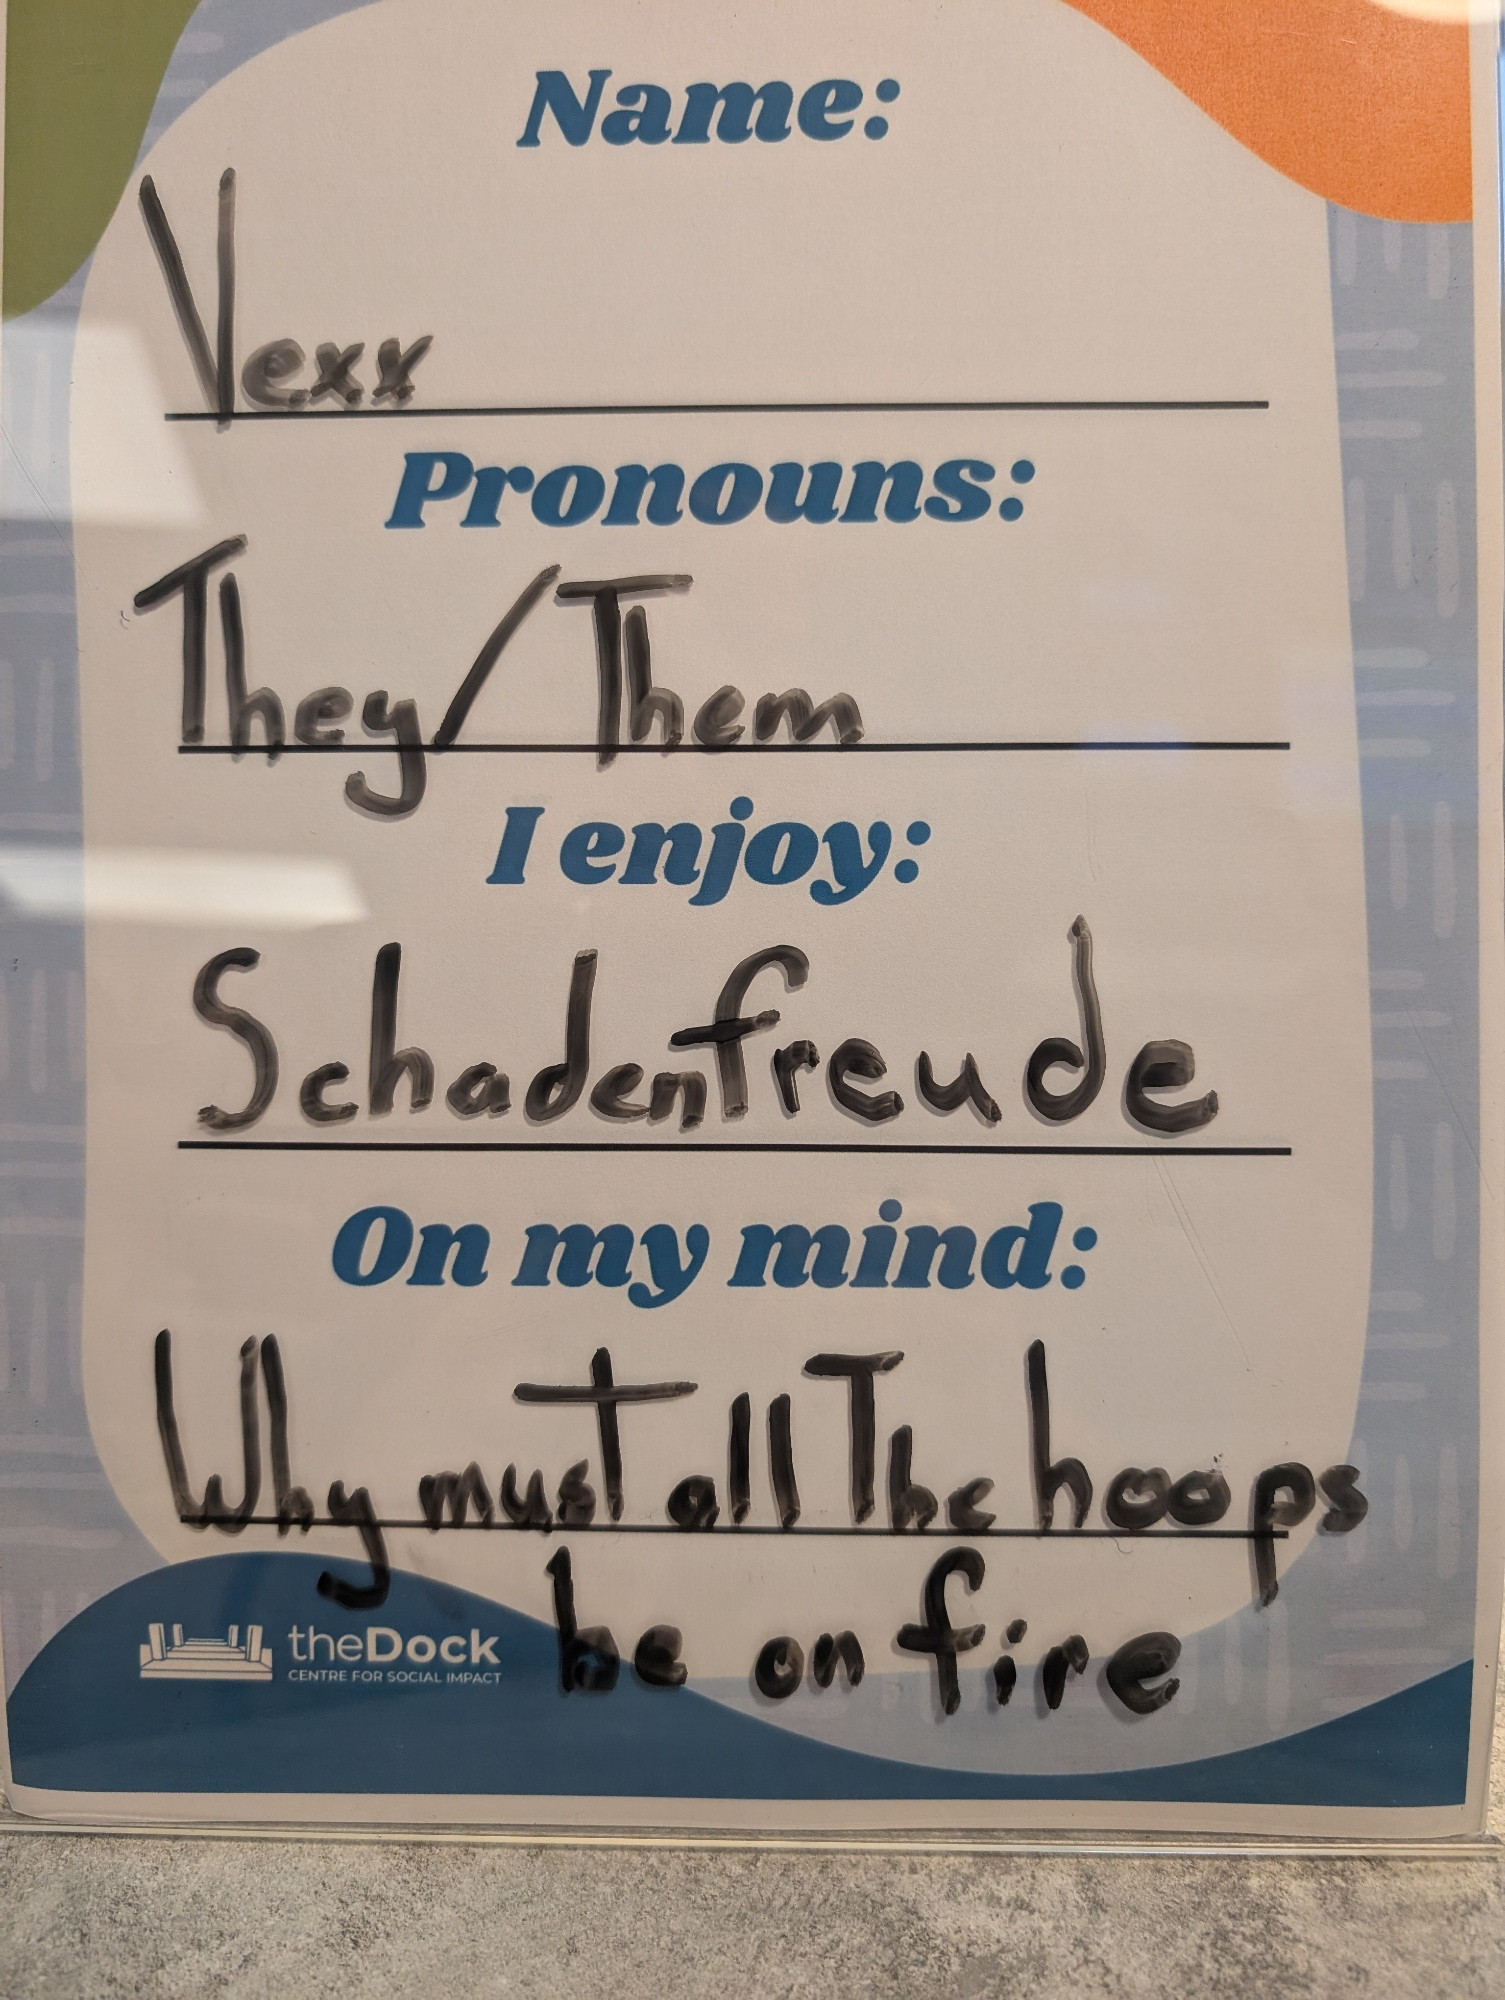 Name:
Vexx
Pronouns:
They/Them
I enjoy:
Schadenfreude
On my mind:
Why must all The hoops
be on fire
theDock
CENTRE FOR SOCIAL IMPACT